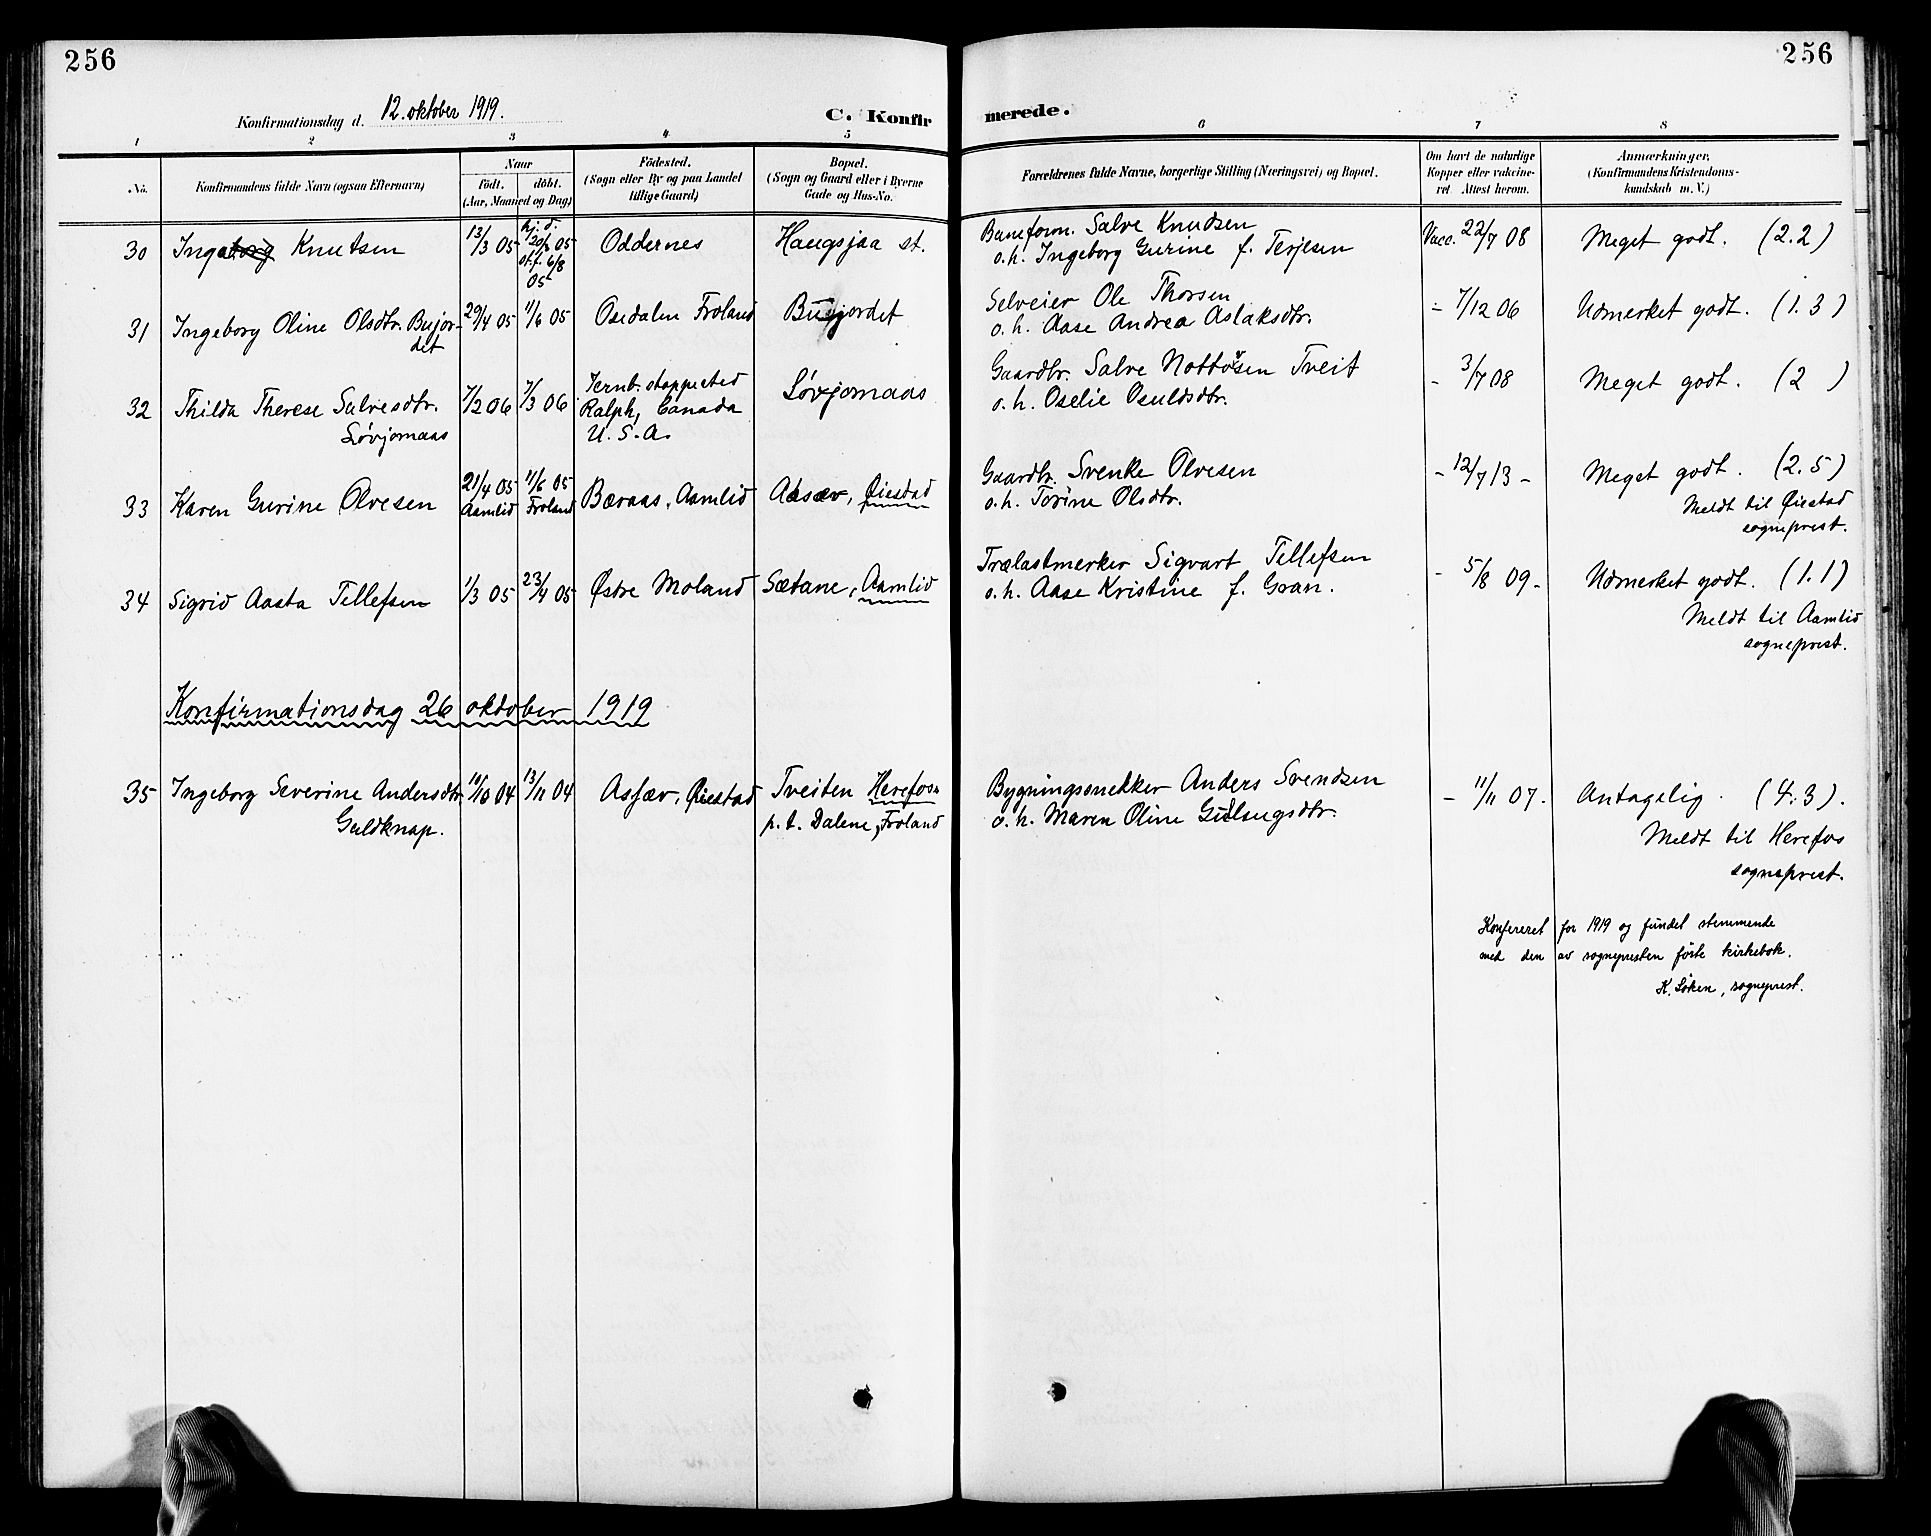 256
256
Konfirmationsdag d. 12. oktober 1919.
C. Konfirmerede.
1 2 3 4 5 6 7 8
No.
Konfirmandens fulde Navn (ogsaa Efternavn)
Naar
födt. döbt.
(Aar, Maaned og Dag)
Födested.
(Sogn eller By og paa Landet
tillige Gaard)
Bopæl.
(Sogn og Gaard eller i Byerne
Gade og Hus-No.
Forældrenes fulde Navne, borgerlige Stilling (Næringsvei) og Bopæl.
Om havt de naturlige
Kopper eller vakcine-
ret. Attest herom.
Anmærkninger.
(Konfirmandens Kristendoms-
kundskab m. V.)
30 Ingeborg Knutsen 13/3 05 hj. d. 20/ 05 st.f. 6/8 05 Oddernes Haugsjaa st. Baneform. Salve Knudsen Vacc. 22/7 08 Meget godt. (2.2)
o.h. Ingeborg Gurine f. Terjesen
31 Ingeborg Oline Olsdtr. Bujor- 29/4 05 11/6 05 Osedalen Froland Buejordet Selveier Ole Thorsen - 7/12 06 Udmerket godt. (1.3)
det o.h. Aase Andrea Aslaksdtr.
32 Thilda Therese Salvesdtr. 7/2 06 7/3 06 Jernb. stoppested Løvjomaas Gaardbr. Salve Nottosen Tveit - 3/7 08 Meget godt. (2 )
Løvjomaas Ralph, Canada o.h. Oselie Osuldsdtr.
U.S.A.
33 Karen Gurine Olvesen 21/4 05 Aamlid 11/6 05 Froland Bæraas, Aamlid Aasæv, Øiestad Gaardbr. Svenke Olvesen - 12/7 13 - Meget godt. (2.5)
o.h. Torine Olsdtr. Meldt til Øiestad
sogneprest.
34 Sigrid Aasta Tellefsen 1/3 05 23/4 05 Østre Moland Sætane, Aamlid Trælastmerker Sigvart Tellefsen - 5/8 09 - Udmerket godt. (1.1)
o.h. Aase Kristine f. Gran. Meldt til Aamlid
sogneprest.
Konfirmationsdag 26 oktober 1919
35 Ingeborg Severine Andersdtr. 10/10 04 13/11 04 Asfæv, Øiestad Tveiten Herefoss Bygningssnekker Anders Svendsen - 11/11 07. Antagelig. (4.3).
Guldknap. p.t. Dalene, Froland o.h. Maren Oline Gulaugsdtr. Meldt til Herefos
sogneprest.
Konfereret for 1919 og fundet stemmende
med den av sognepresten førte kirkebok.
K. Søken, sogneprest.